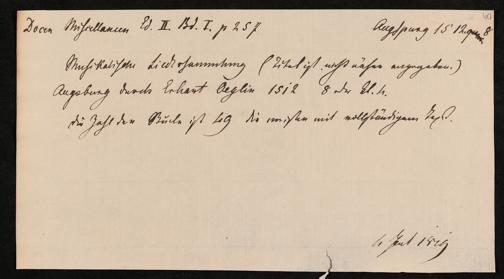 Docen Miscellaneen Ed. II. Bd. I. p 257 Augspurg 1512
Musikalische Liedersammlung (Titel ist nicht näher angegeben.)
Augsburg durch Erhart Oeglin 1512 8 der Bl. h.
die Zahl der Stücke ist 49 die meisten mit vollständigem Text.